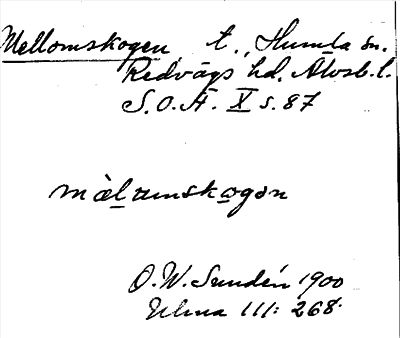 Mellomskogen, t., Humla sn.
Redvägs hd. Älvsb. l.
S.O.Ä. X s. 87
màlamskogən
O.W. Sundén 1900
Ulma 111: 268.